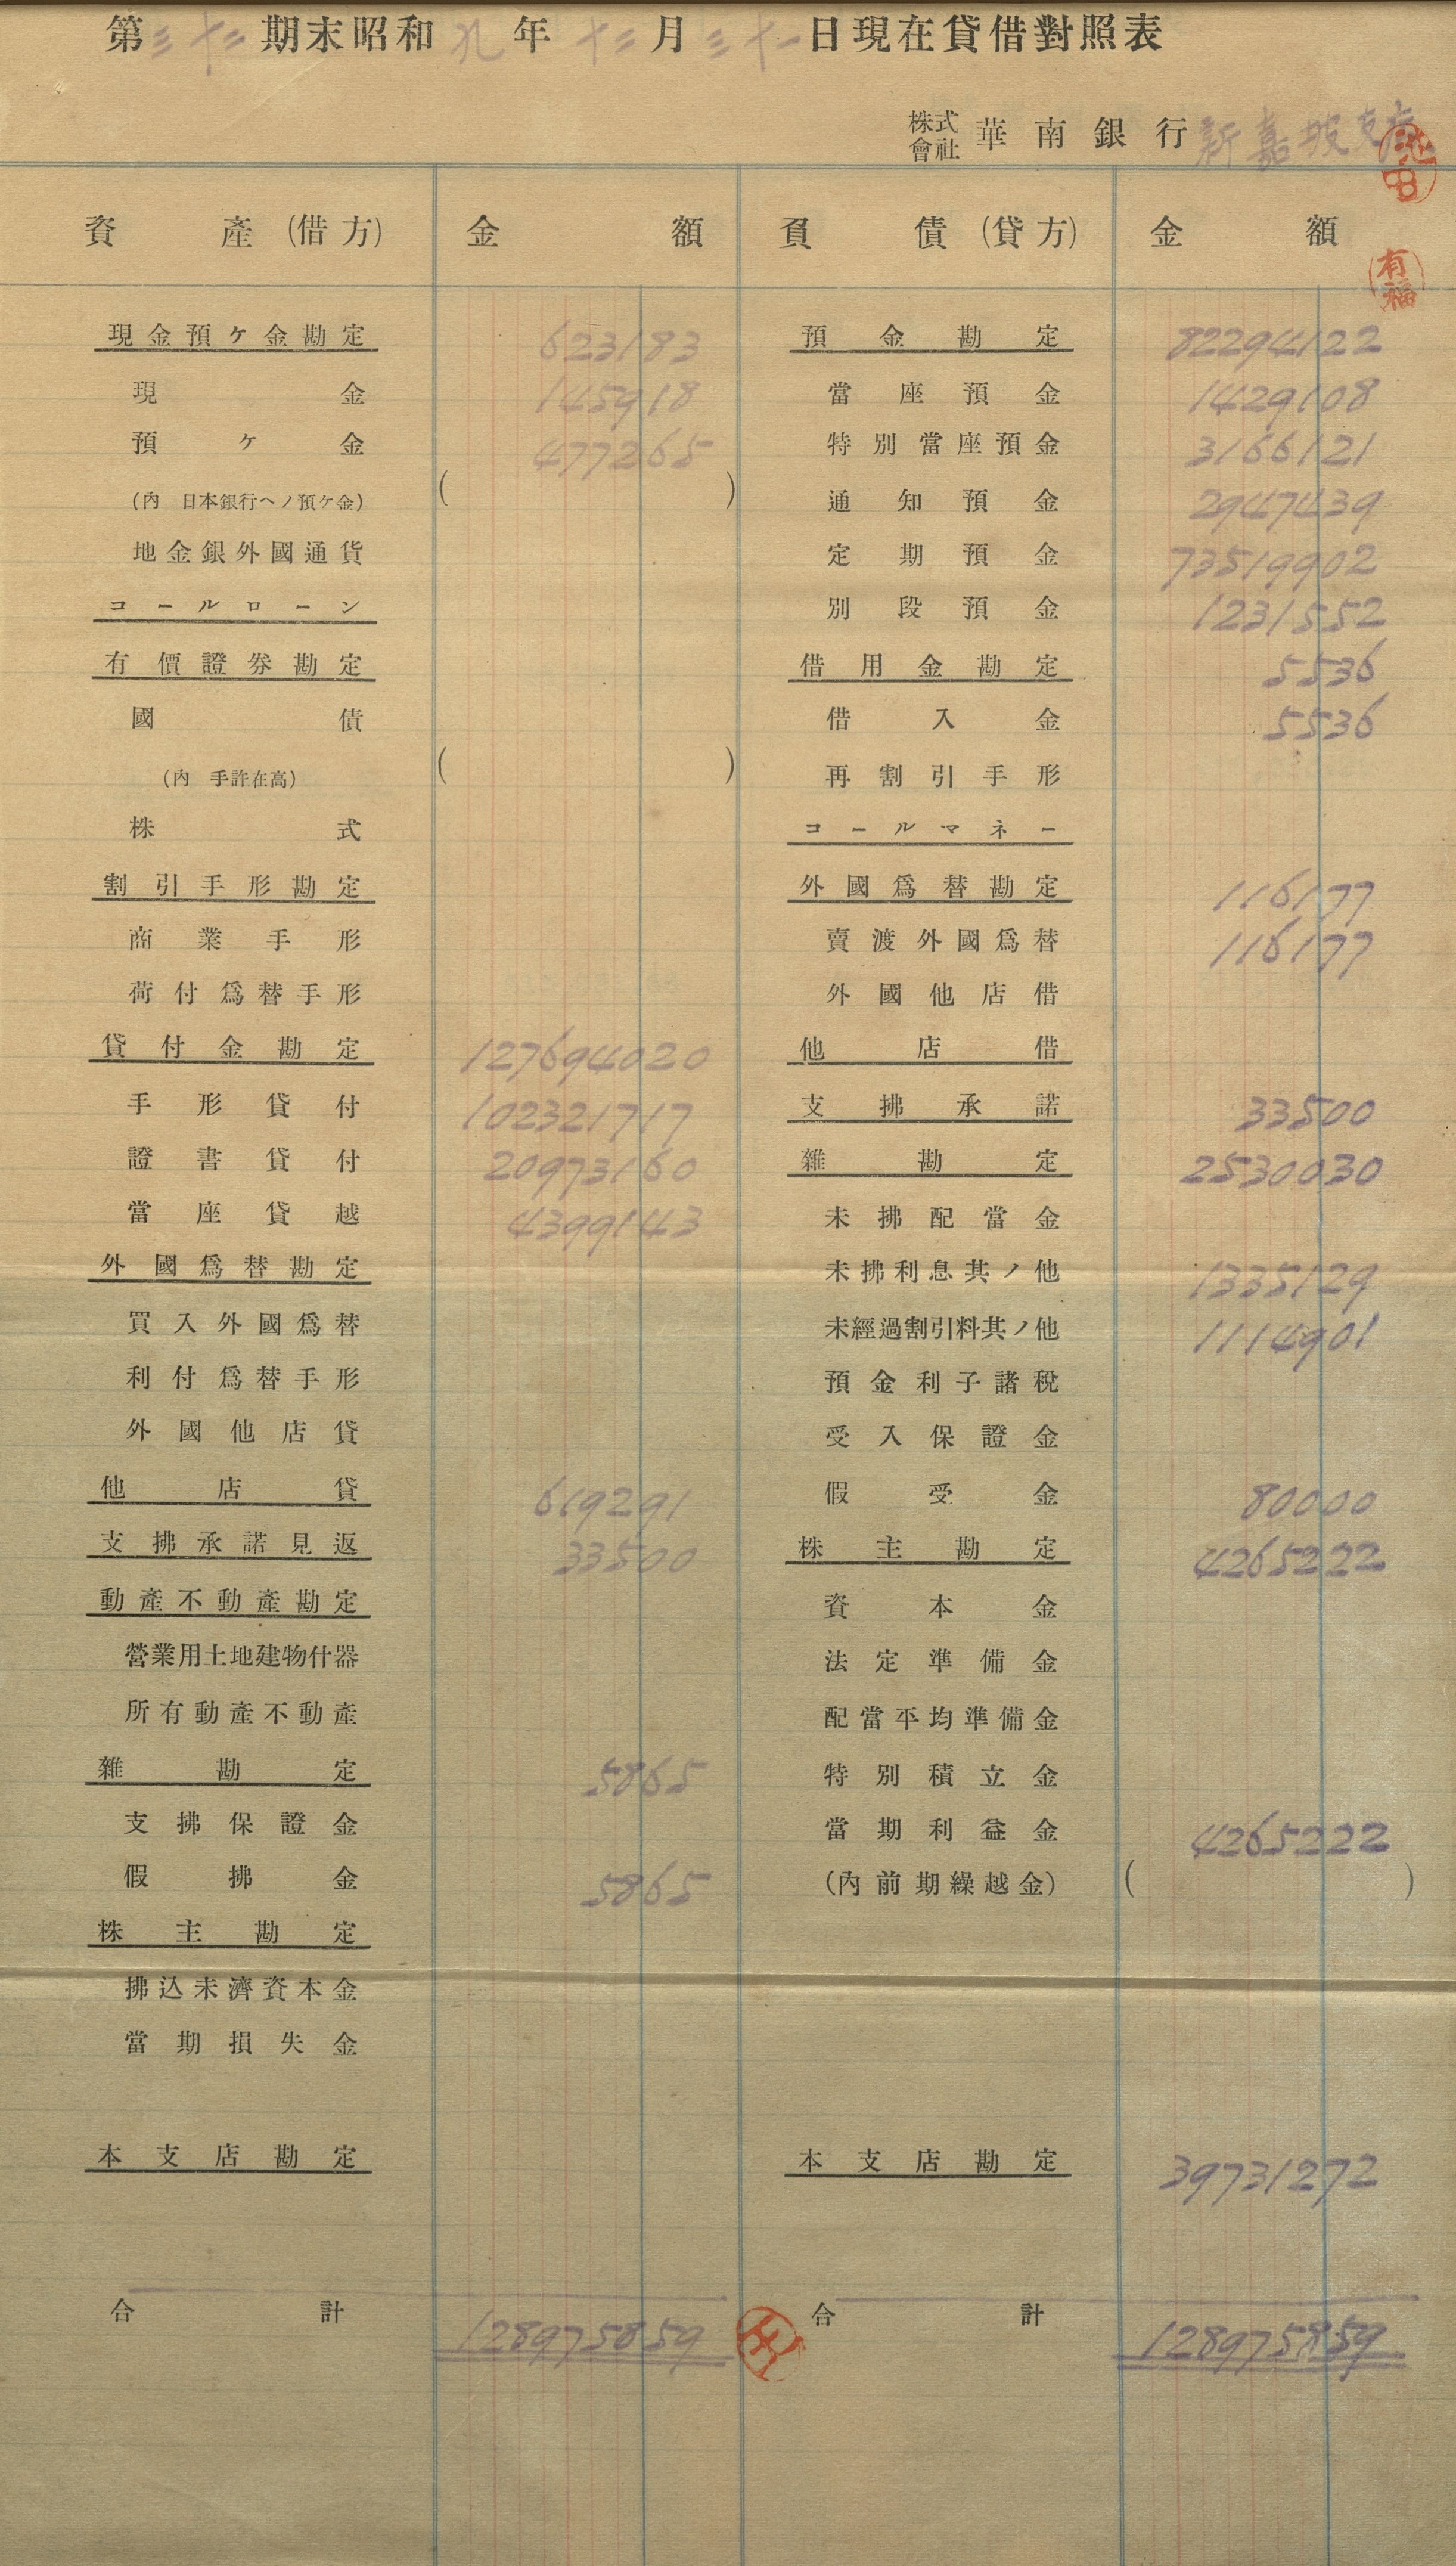 第三十二期末昭和九年十二月三十一日現在貸借對照表
株式會社 華南銀行 新嘉坡支店
池田
有福
資產(借方) 金額 負債(貸方) 金額
現金預ケ金勘定 623183 預金勘定 82294122
現金 145918 當座預金 1429108
預ケ金 477265 特別當座預金 3166121
(內 日本銀行ヘノ預ケ金) ( ) 通知預金 2947439
地金銀外國通貨 定期預金 73519902
コールローン 別段預金 1231552
有價證券勘定 借用金勘定 5536
國債 借入金 5536
(內 手許在高) ( ) 再割引手形
株式 コールマネー
割引手形勘定 外國爲替勘定 116177
商業手形 賣渡外國爲替 116177
荷付爲替手形 外國他店借
貸付金勘定 127694020 他店借
手形貸付 102321717 支拂承諾 33500
證書貸付 20973160 雜勘定 2530030
當座貸越 4399143 未拂配當金
外國爲替勘定 未拂利息其ノ他 1335129
買入外國爲替 未經過割引料其ノ他 1114901
利付爲替手形 預金利子諸稅
外國他店貸 受入保證金
他店貸 619291 假受金 80000
支拂承諾見返 33500 株主勘定 4265222
動產不動產勘定 資本金
營業用土地建物什器 法定準備金
所有動產不動產 配當平均準備金
雜勘定 5865 特別積立金
支拂保證金 當期利益金 4265222
假拂金 5865 (內前期繰越金) ( )
株主勘定
拂込未濟資本金
當期損失金
本支店勘定 本支店勘定 39731272
合計 128975859 合計 128975859